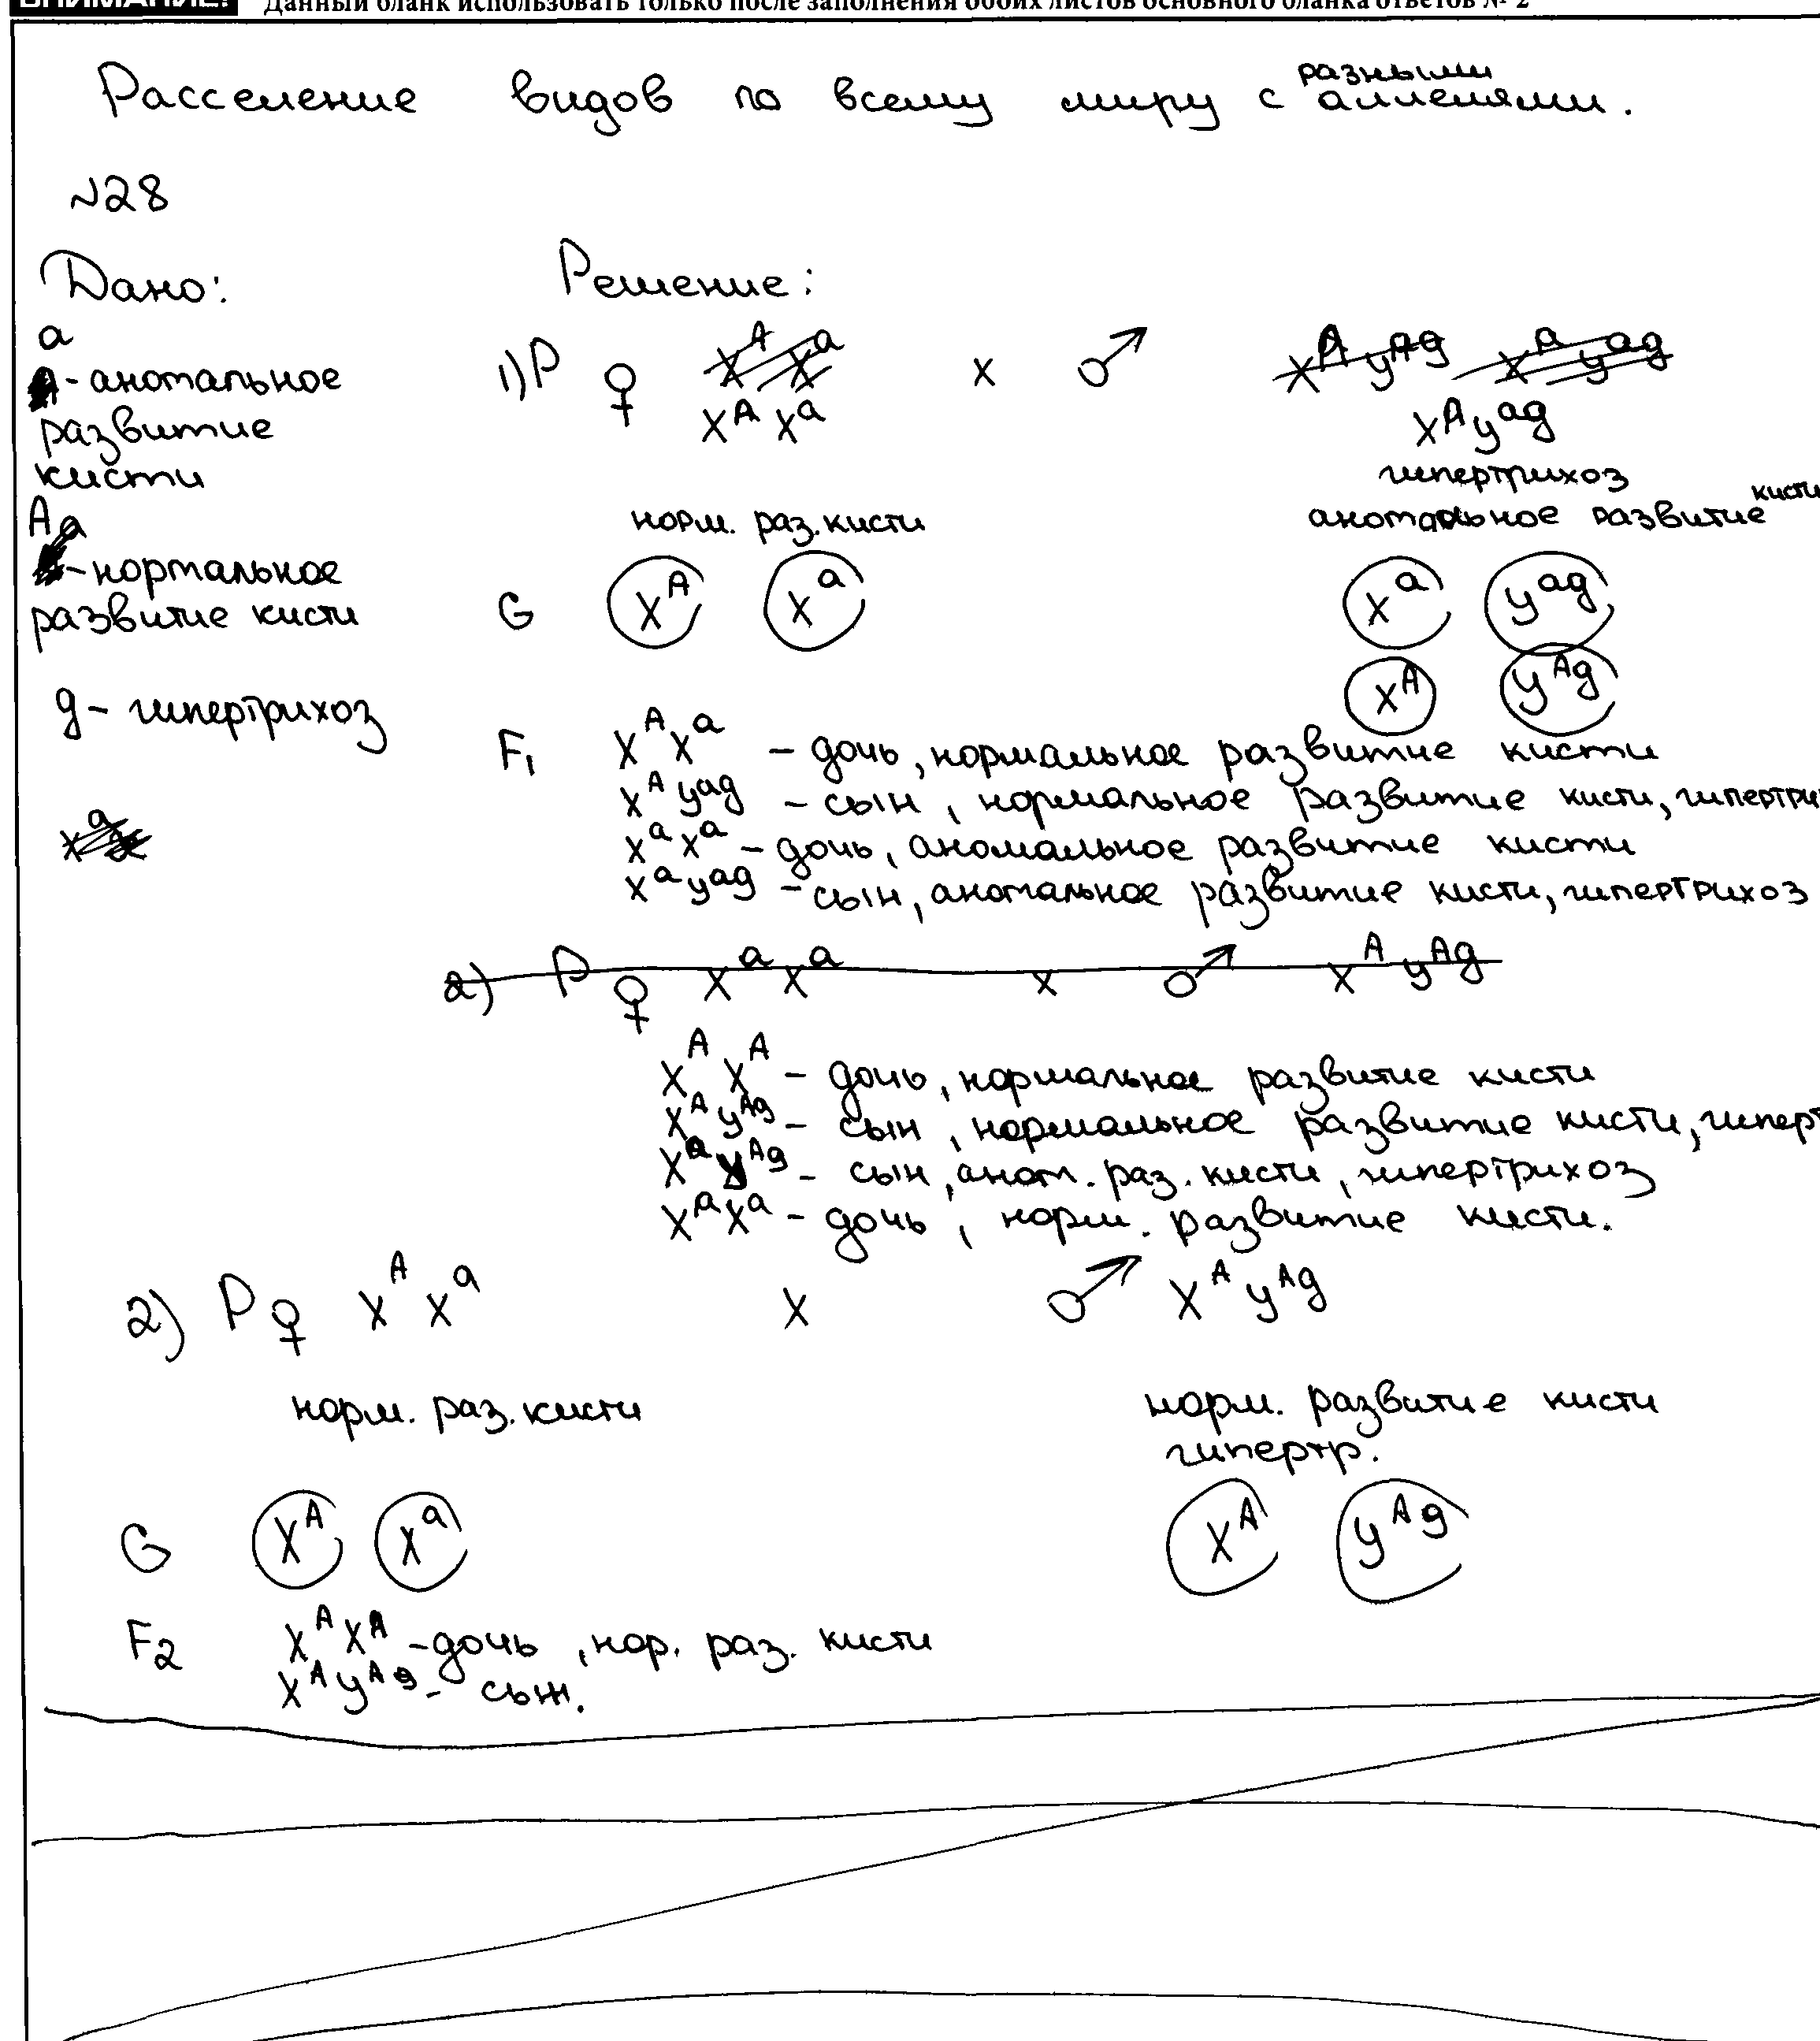 ВНИМАНИЕ! Данный бланк использовать только после заполнения обоих листов основного бланка ответов № 2
Расселение видов по всему миру с разными аллелями.
№28
Дано:
Решение:
a
- аномальное
развитие
кисти
A
- нормальное
развитие кисти
g - гипертрихоз
1) P ♀ X^A X^a x ♂ X^A y^ag
гипертрихоз
норм. раз. кисти аномальное развитие кисти
G X^A X^a X^a y^ag
X^A y^Ag
F1 X^A X^a - дочь, нормальное развитие кисти
X^A y^ag - сын, нормальное развитие кисти, гипертри
X^a X^a - дочь, аномальное развитие кисти
X^a y^ag - сын, аномальное развитие кисти, гипертрихоз
2) P ♀ X^a X^a x ♂ X^A y^Ag
X^A X^A - дочь, нормальное развитие кисти
X^A y^Ag - сын, нормальное развитие кисти, гиперт
X^a y^Ag - сын, аном. раз. кисти, гипертрихоз
X^a X^a - дочь, норм. развитие кисти.
2) P ♀ X^A X^a x ♂ X^A y^Ag
норм. раз. кисти норм. развитие кисти
гипертр.
G X^A X^a X^A y^Ag
F2 X^A X^A - дочь, нор. раз. кисти
X^A y^Ag - сын.